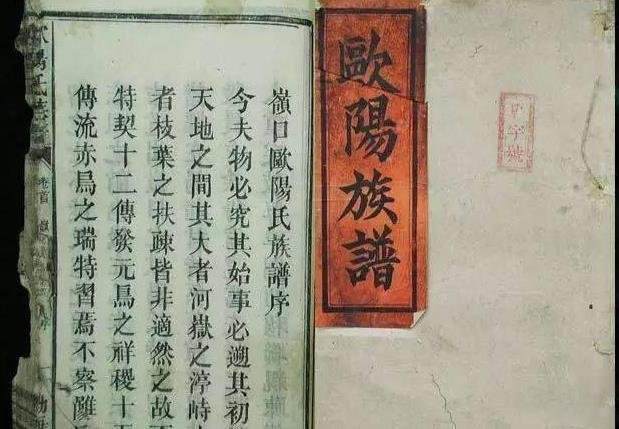 歐陽族譜
嶺口歐陽氏族譜序
今夫物必究其始事必遡其初
天地之間其大者河嶽之渟峙
者枝葉之扶疎皆非適然之故
特契十二傳發元鳥之祥稷十
傳流赤烏之瑞特習焉不察雖
卷首